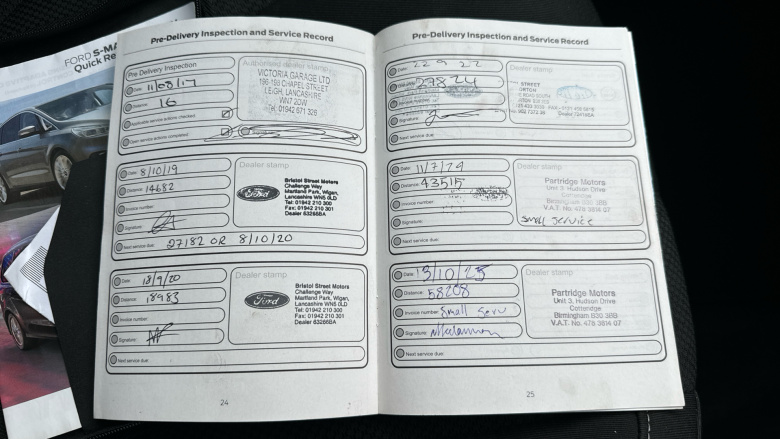 FORD S-MA
Quick Re
Pre-Delivery Inspection and Service Record
Pre Delivery Inspection
Date: 11/08/17
Distance: 16
Applicable service actions checked
Open service actions completed
Authorised dealer stamp
VICTORIA GARAGE LTD
CHAPEL STREET
LEIGH, LANCASHIRE
WN7 2DW
Tel: 01942 671 326
Date: 8/10/19
Distance: 14682
Invoice number:
Signature:
Next service due: 27182 OR 8/10/20
Dealer stamp
Ford
Bristol Street Motors
Challenge Way
Martland Park, Wigan,
Lancashire WN5 0LD
Tel: 01942 210 300
Fax: 01942 210 301
Dealer 63266BA
Date: 18/9/20
Distance: 18983
Invoice number:
Signature:
Next service due:
Dealer stamp
Ford
Bristol Street Motors
Challenge Way
Martland Park, Wigan,
Lancashire WN5 0LD
Tel: 01942 210 300
Fax: 01942 210 301
Dealer 63266BA
24
Pre-Delivery Inspection and Service Record
Date: 22 9 22
27824
Signature:
Next service due:
Dealer stamp
STREET
Date: 11/7/24
Distance: 43515
Invoice number:
Signature:
Next service due:
Dealer stamp
Partridge Motors
Unit 3, Hudson Drive
Birmingham B30 3BB
V.A.T. No. 478 3814 07
Small Service
Date: 13/10/25
Distance: 58208
Invoice number: Small Serv
Signature:
Next service due:
Dealer stamp
Partridge Motors
Unit 3, Hudson Drive
Cotteridge
Birmingham B30 3BB
V.A.T. No. 478 3814 07
25